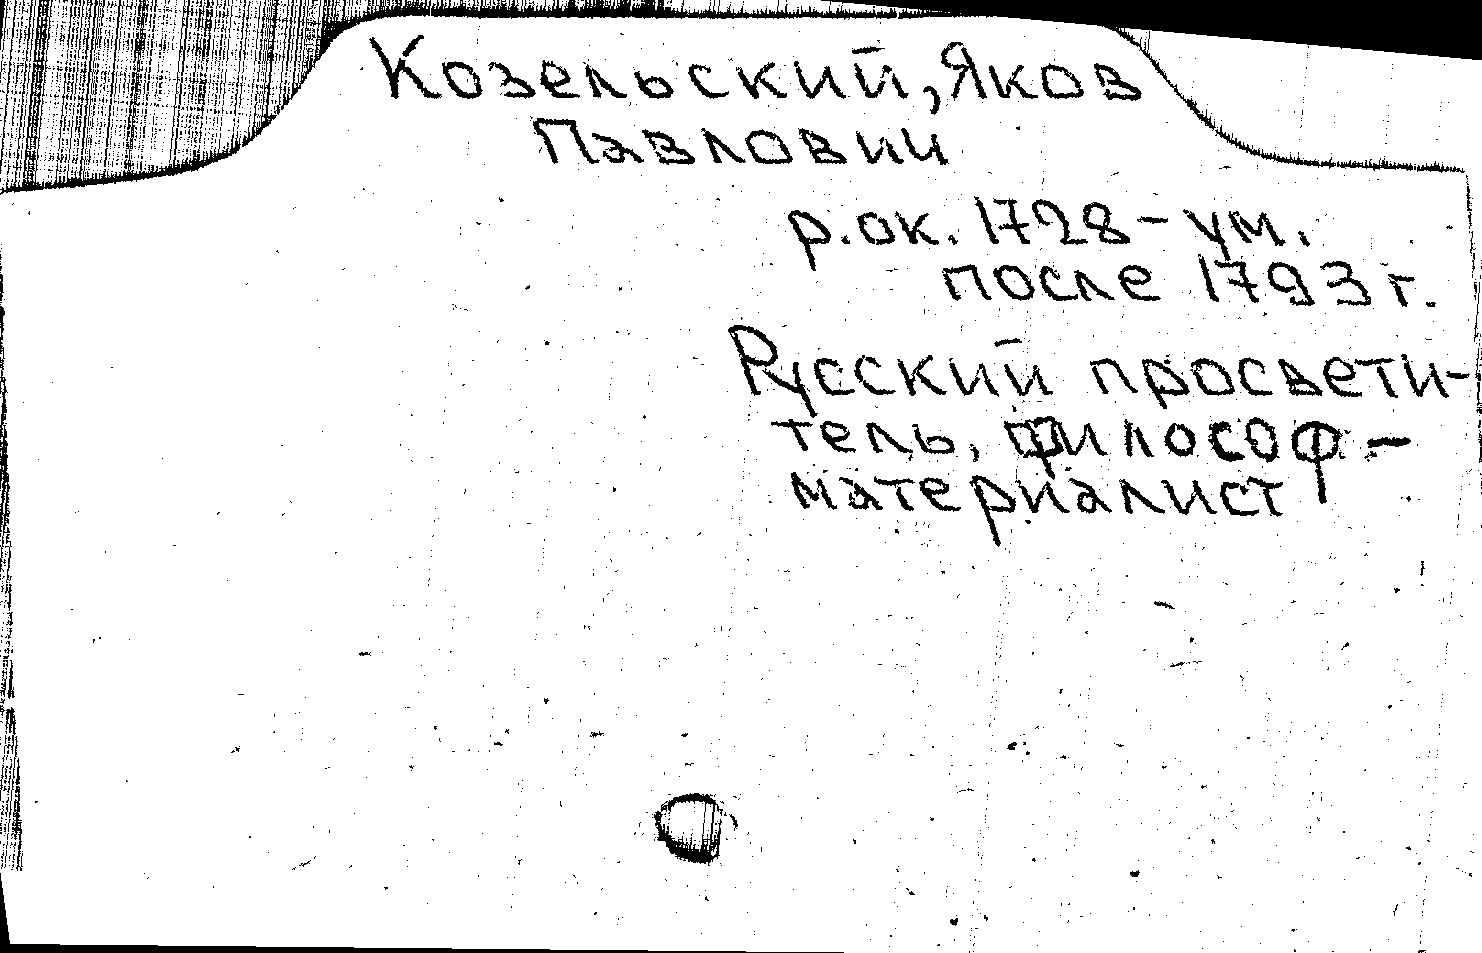 Козельский, Яков
Павлович
р. ок. 1728 - ум.
после 1793 г.
Русский просвети-
тель, философ -
материалист